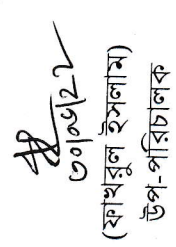 ৩০/০৬/২২
(ফাখরুল ইসলাম)
উপ-পরিচালক